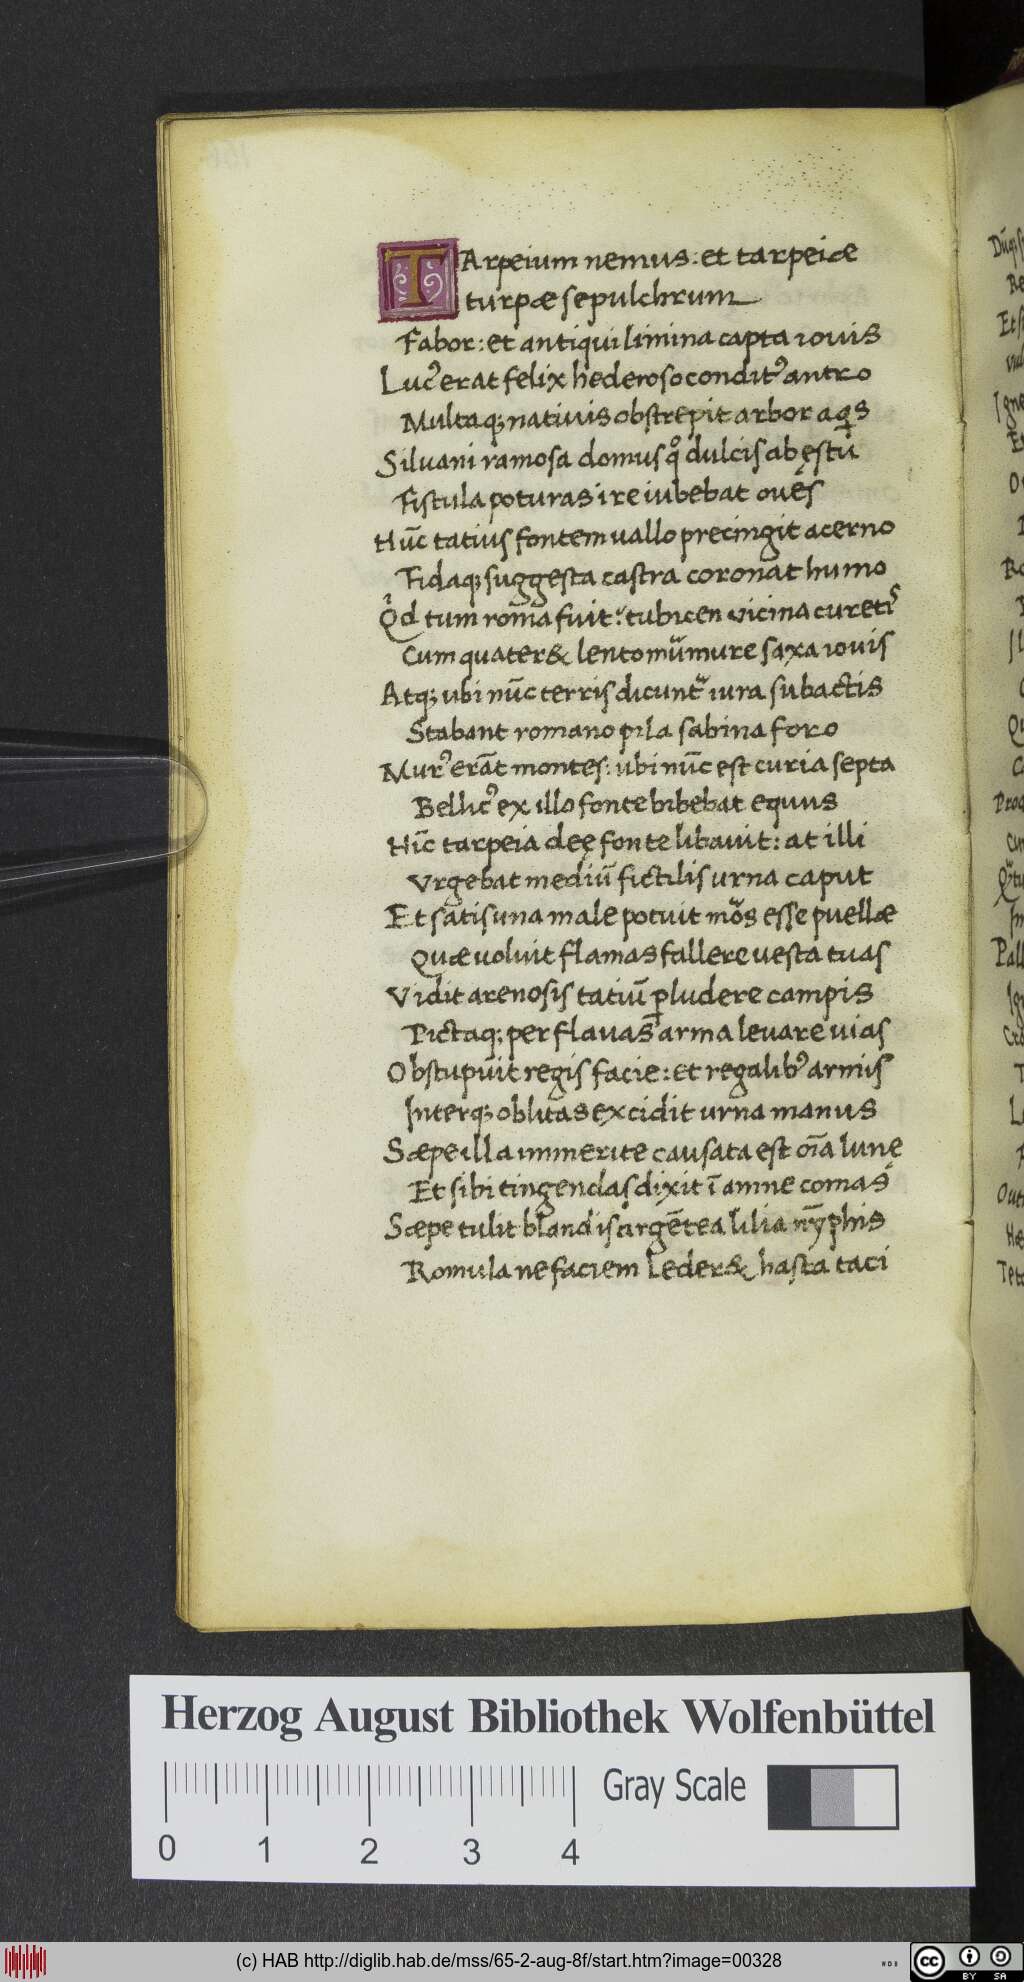 TArpeium nemus: et tarpeiæ
turpæ sepulchrum
Fabor: et antiqui limina capta iouis
Lucꝰ erat felix hederoso conditꝰ antro
Multaqꝫ natiuis obstrepit arbor aqͥs
Siluani ramosa domus qͦ dulcis ab ęstu
Fistula poturas ire iubebat ouęs
Hūc tatius fontem uallo precingit acerno
Fidaqꝫ suggesta castra coronat humo
Qͥd tum roma fuit? tubicen vicina curetiſ
Cum quater& lento mūmure saxa iouis
Atqꝫ ubi nūc terris dicunt iura subactis
Stabant romano pila sabina foro
Murꝰ erāt montes: ubi nūc est curia septa
Bellicꝰ ex illo fonte bibebat equus
Hīc tarpeia deę fonte libauit: at illi
Vrgebat mediū fictilis urna caput
Et satis una male potuit mors esse puellæ
Quæ uoluit flamas fallere uesta tuas
Vidit arenosis tatiū ꝓludere campis
Pictaqꝫ per flauas arma leuare uias
Obstupuit regis facie: et regalibꝰ armis
Interqꝫ oblitas excidit urna manus
Sæpe illa immerite causata est oīa lunę
Et sibi tingendas dixit ī amne comas
Sæpe tulit blandis argētea lilia nȳphis
Romula ne faciem leder& hasta taci
Herzog August Bibliothek Wolfenbüttel
0 1 2 3 4 Gray Scale
(c) HAB http://diglib.hab.de/mss/65-2-aug-8f/start.htm?image=00328
WDB
cc BY SA